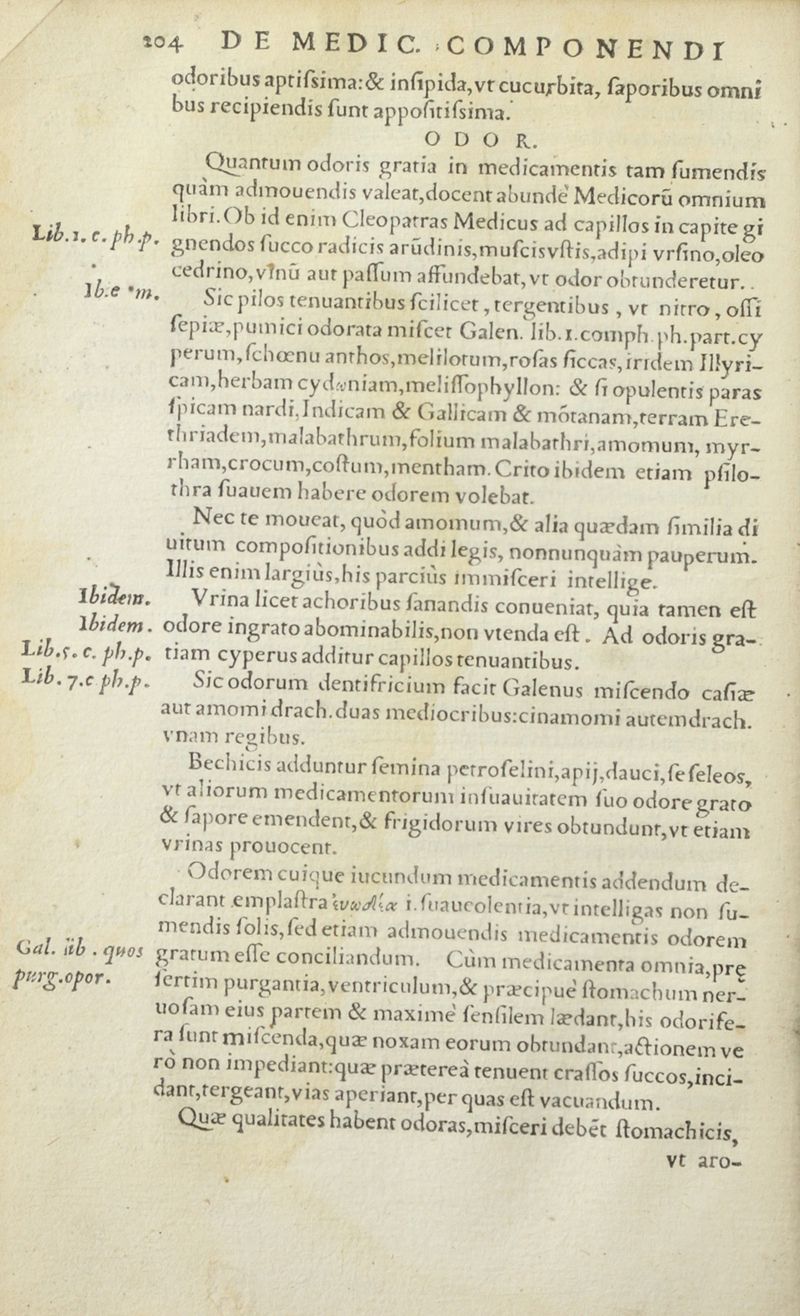 204 DE MEDIC. COMPONENDI
odoribus aptiſsima:& inſipida,vt cucurbita, ſaporibus omni
bus recipiendis ſunt appoſitiſsima.
ODOR.
Quantum odoris gratia in medicamentis tam ſumendis
quàm admouendis valeat,docent abundè Medicorū omnium
Lib.1.c.ph.p.
libri. Ob id enim Cleopatras Medicus ad capillos in capite gi
gnendos ſucco radicis arūdinis,muſcis vſtis,adipi vrſino,oleo
cedrino,vīnū aut paſſum affundebat,vt odor obtunderetur.
Ib.e m.
Sic pilos tenuantibus ſcilicet, tergentibus, vt nitro, oſſi
ſepiæ,pumici odorata miſcet Galen. lib.1.comph.ph.part.cy
perum,ſchœnu anthos,melilotum,roſas ſiccas,iridem Illyri-
cam,herbam cydωniam,meliſſophyllon: & ſi opulentis paras
ſpicam nardi,Indicam & Gallicam & mōtanam,terram Ere-
thriadem,malabathrum,folium malabathri,amomum, myr-
rham,crocum,coſtum,mentham. Crito ibidem etiam pſilo-
thra ſuauem habere odorem volebat.
Nec te moueat, quòd amomum,& alia quædam ſimilia di
uitum compoſitionibus addi legis, nonnunquàm pauperum.
Illis enim largiùs,his parciùs immiſceri intellige.
Ibidem.
Vrina licet achoribus ſanandis conueniat, quia tamen eſt
Ibidem.
odore ingrato abominabilis,non vtenda eſt. Ad odoris gra-
Lib.5.c.ph.p.
tiam cyperus additur capillos tenuantibus.
Lib.7.c ph.p.
Sic odorum dentifricium facit Galenus miſcendo caſiæ
aut amomi drach.duas mediocribus:cinamomi autem drach.
vnam regibus.
Bechicis adduntur ſemina petroſelini,apij,dauci,ſeſeleos,
vt aliorum medicamentorum inſuauitatem ſuo odore grato
& ſapore emendent,& frigidorum vires obtundunt,vt etiam
vrinas prouocent.
Odorem cuique iucundum medicamentis addendum de-
clarant emplaſtra i.ſuaueolentia,vt intelligas non ſu-
mendis ſolis,ſed etiam admouendis medicamentis odorem
Gal. lib. quos
gratum eſſe conciliandum. Cùm medicamenta omnia,præ
purg.opor.
ſertim purgantia,ventriculum,& præcipuè ſtomachum ner-
uoſam eius partem & maximè ſenſilem lædant,his odorife-
ra ſunt miſcenda,quæ noxam eorum obtundant,actionem ve
rò non impediant:quæ præterea tenuent craſſos ſuccos,inci-
dant,tergeant,vias aperiant,per quas eſt vacuandum.
Quæ qualitates habent odoras,miſceri debēt ſtomachicis,
vt aro-